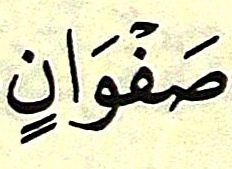 صَفْوَانٍ